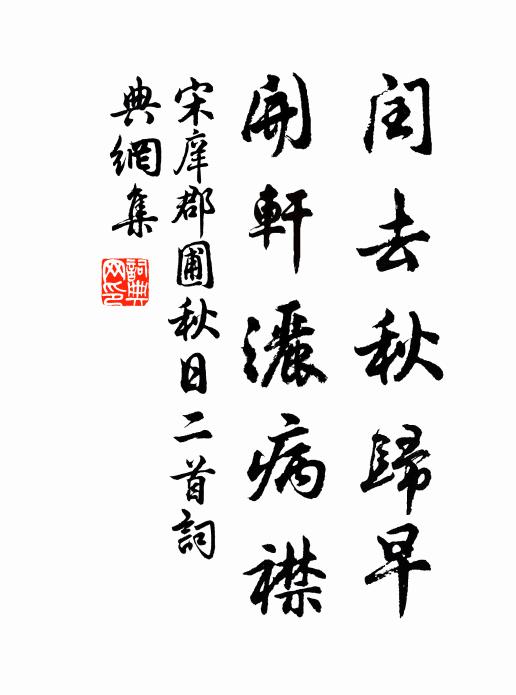 閏去秋歸早
開軒灑病襟
宋庠郡圃秋日二首詞
典網集
詞典
网印